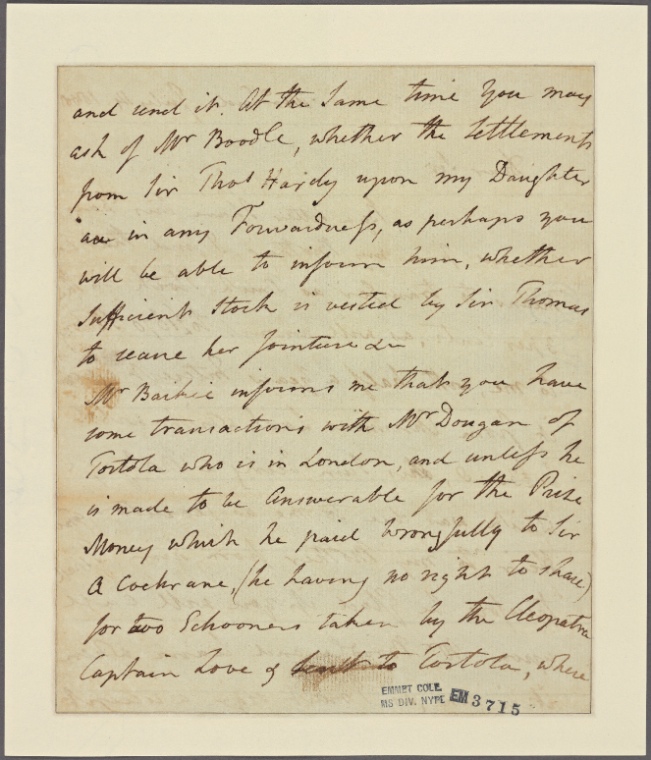 and send it. At the Same time You may
ask of Mr Boodle, whether the Settlements
from Sir Thos Hardy upon my Daughter
are in any Forwardness, as perhaps you
will be able to inform him, whether
Sufficient Stock is vested by Sir Thomas
to secure her Jointure &c
Mr Baikie informs me that you have
some transactions with Mr Dougan of
Tortola who is in London, and unless he
is made to be Answerable for the Prize
Money which he paid wrongfully to Sir
A Cochrane, (he having no right to share)
for two Schooners taken by the Cleopatra
Captain Love & to Tortola, where
EMMET COLL.
MS DIV. NYPL
EM 3715